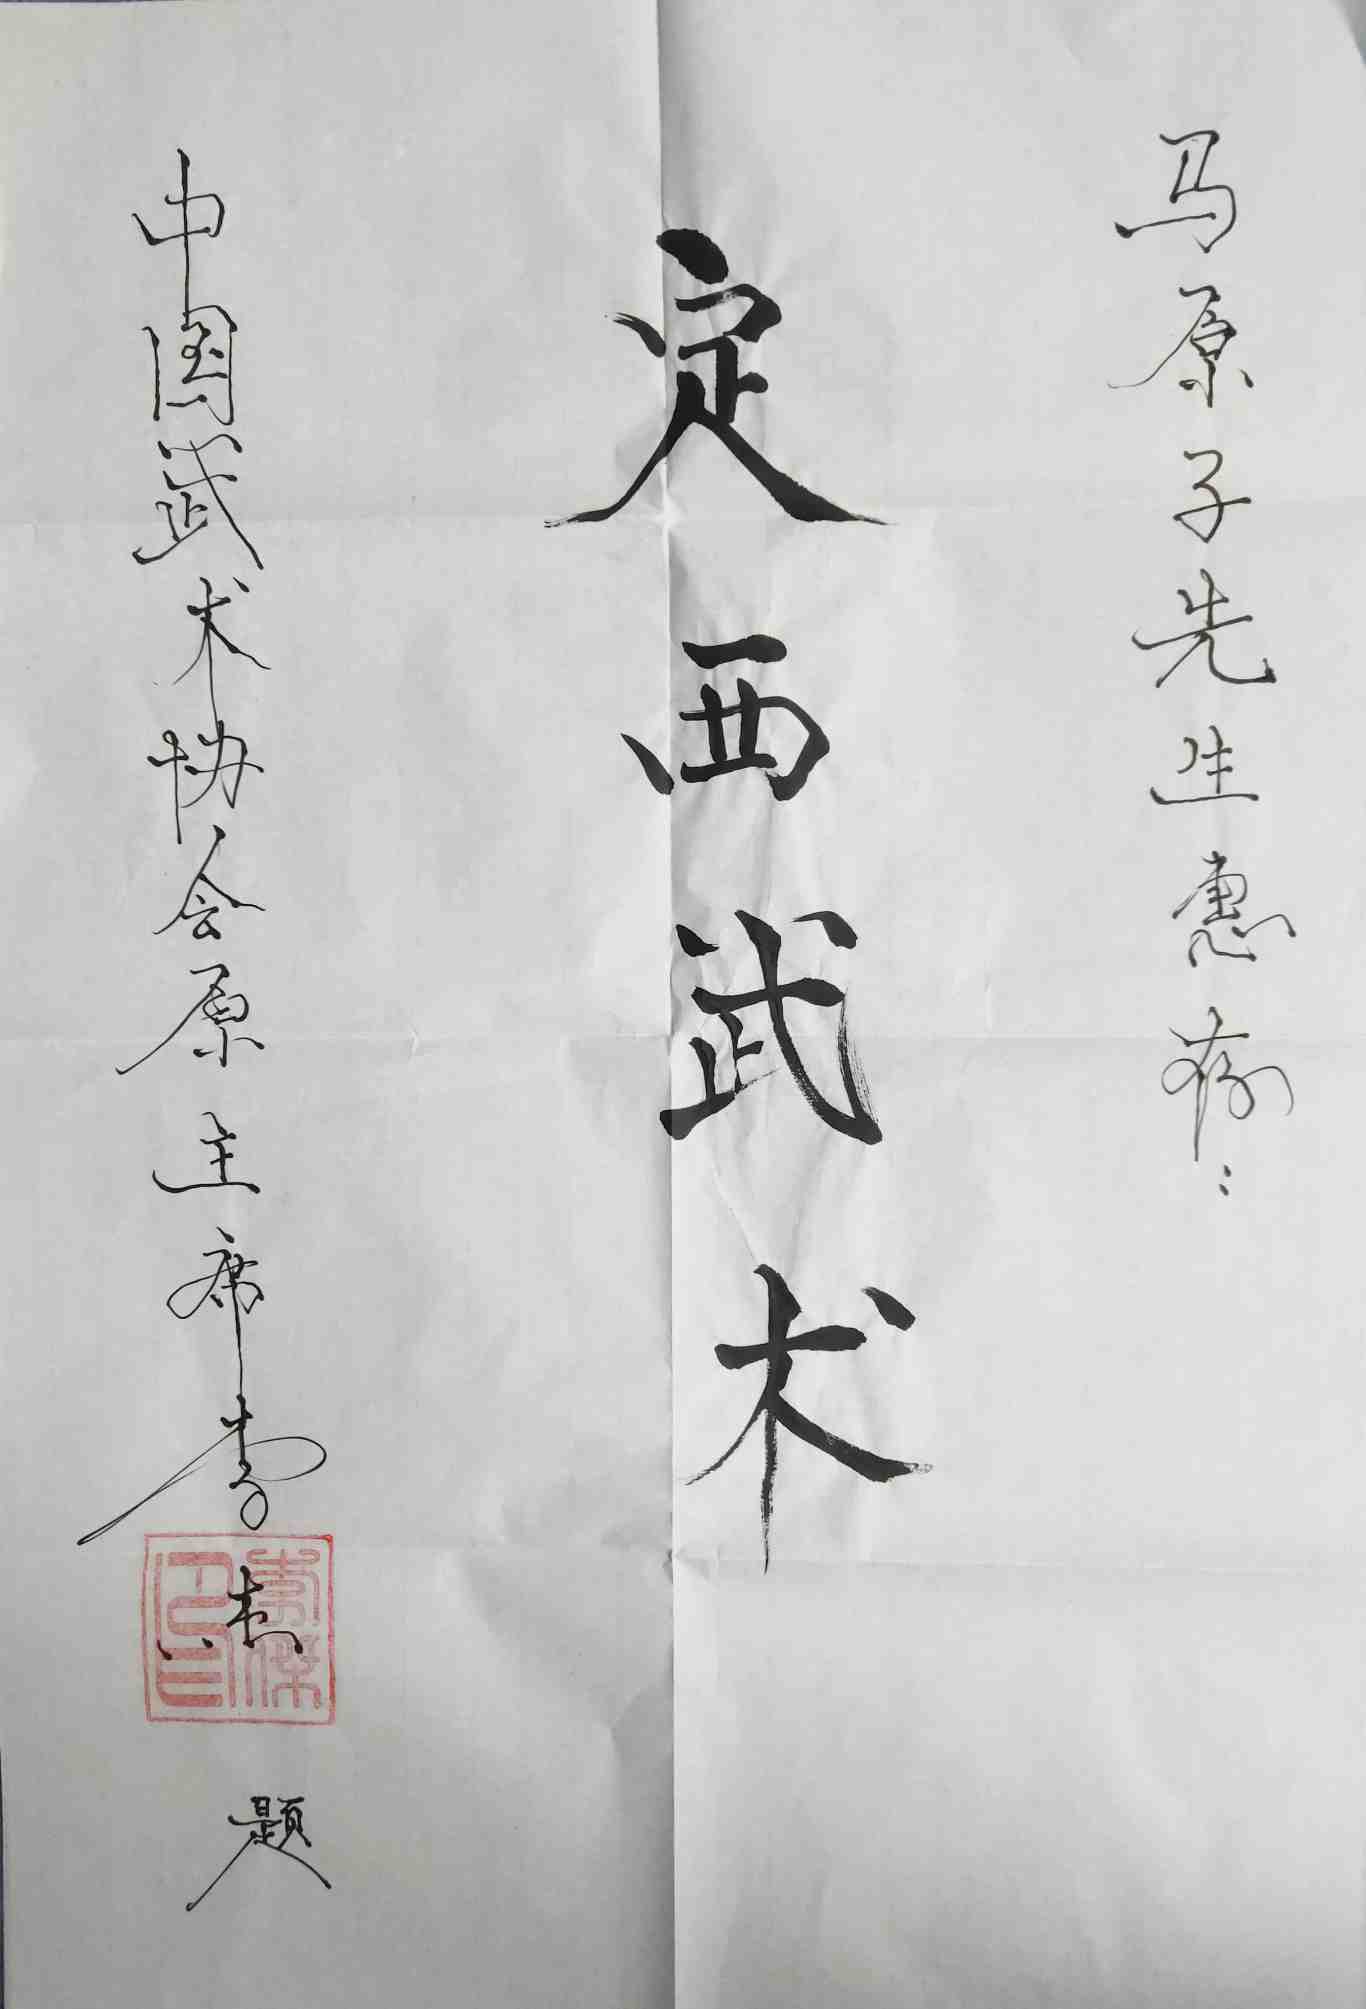 马原子先生惠存:
定西武术
中国武术协会原主席李杰
题
李傑
印